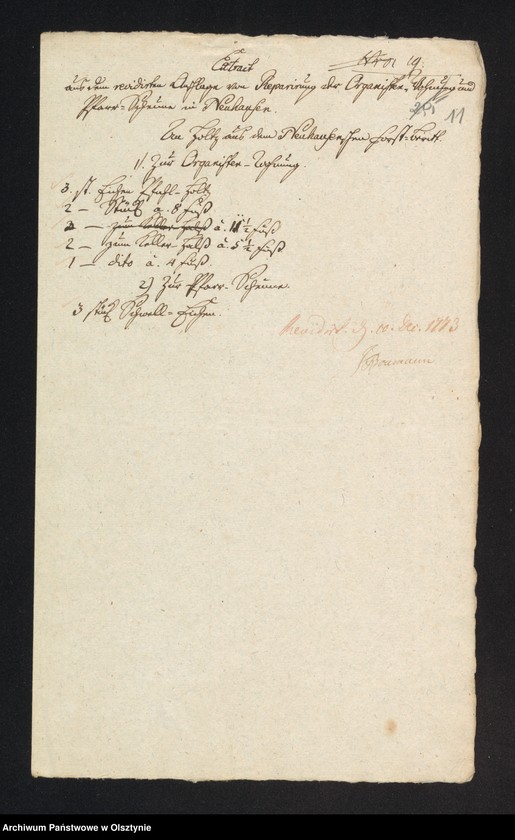 Extrait
aus dem revidirten Anschlage von Reparirung der Organisten-Wohnung und
Pfarr-Scheune in Neuhausen.
11
An Holtz aus dem Neuhausenschen Forst-Beritt.
1) Zur Organisten-Wohnung.
3. st. Eichen Pfahl-Holtz
2 — Stück a. 8 Fuß
2 — zum Keller-Halß à. 11 1/2 Fuß
2 — zum Keller-Halß à. 5 1/2 Fuß
1 — dito à. 4 Fuß.
2) Zur Pfarr-Scheune.
3 stück Schwell-Eichen.
Revidirt. d. 10. Dec. 1773
Baumann
Archiwum Państwowe w Olsztynie